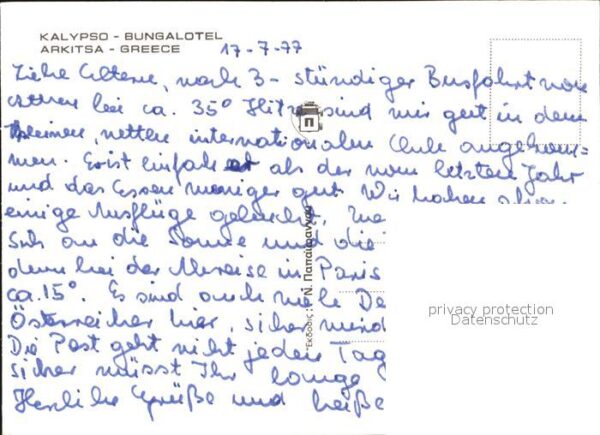 KALYPSO - BUNGALOTEL
ARKITSA - GREECE
17-7-77
Liebe Eltern, nach 3-stündiger Busfahrt von
Athen bei ca. 35° Hitze sind wir gut in dem
kleinen, netten internationalen Club angekom-
men. Er ist einfacher als der vom letzten Jahr
und das Essen weniger gut. Wir haben aber
einige Ausflüge gebucht,
sich an die Sonne und die
denn bei der Abreise in Paris
ca. 15°. Es sind auch viele De
Österreicher hier, sicher sind
Die Post geht nicht jeden Tag
sicher müsst Ihr lange
Herzliche Grüße und heiße
Εκδοσις: Ν. Παπαϊωάννου
privacy protection
Datenschutz